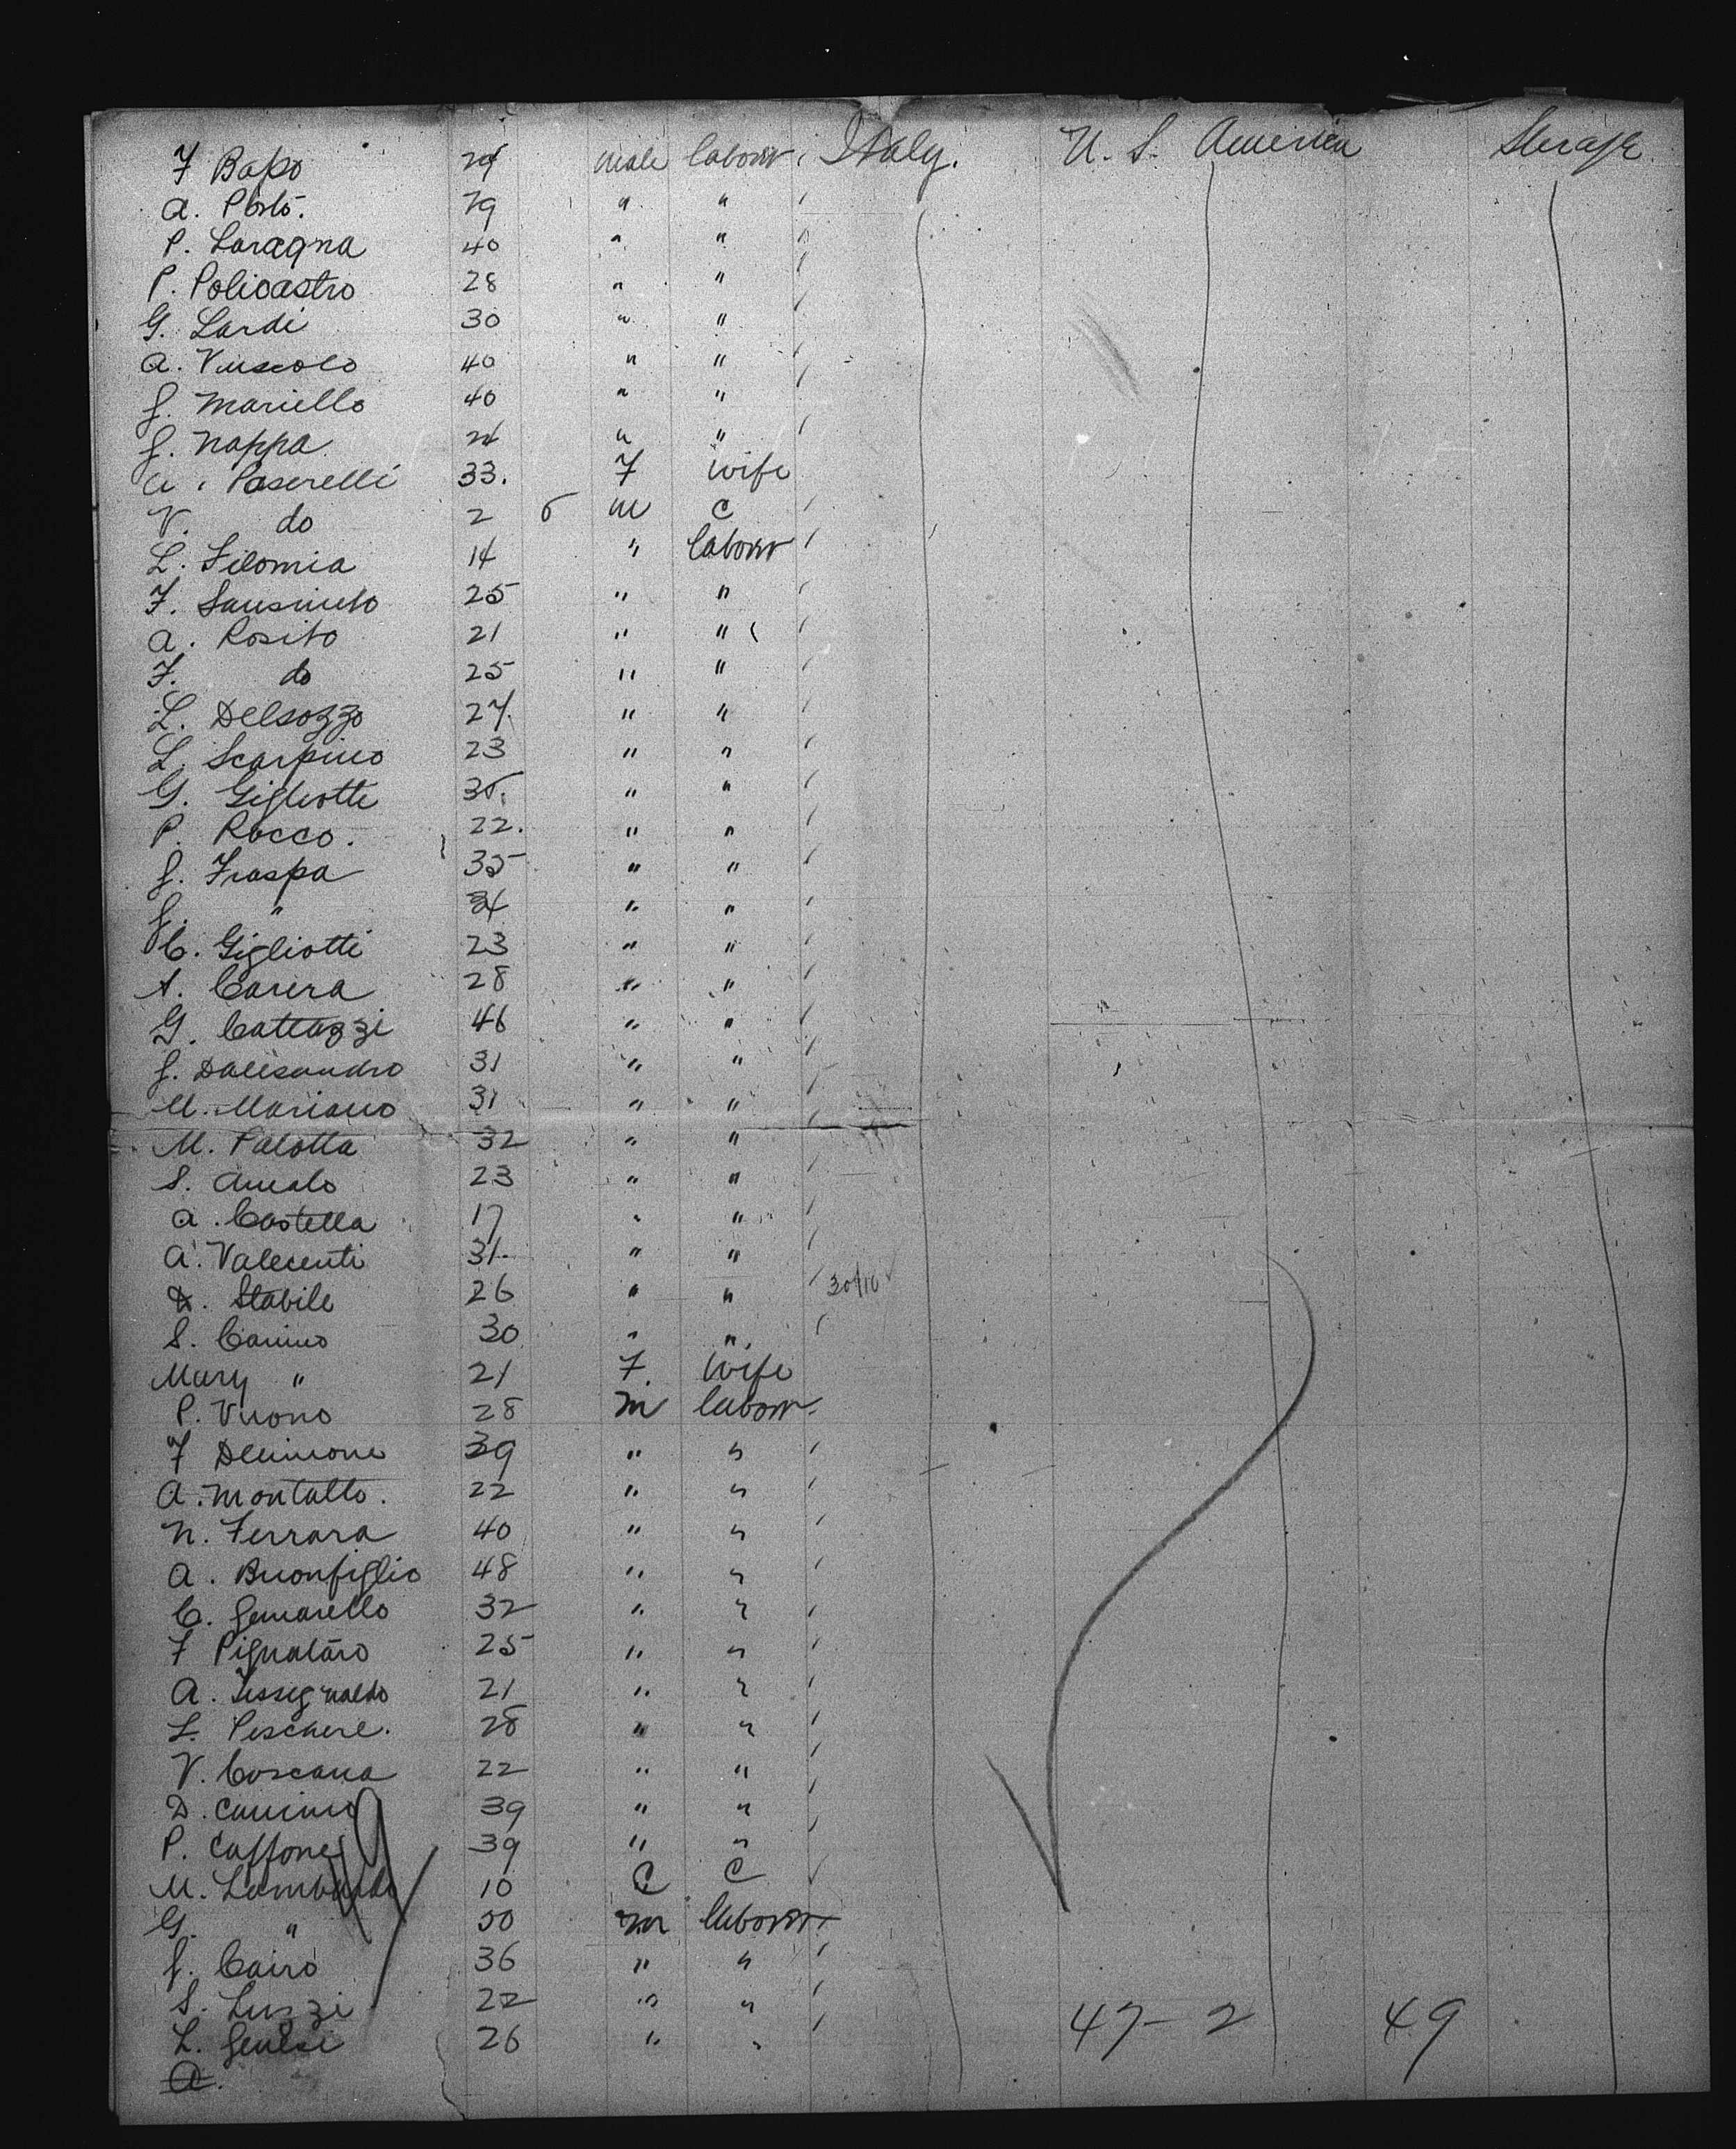 F Bapo 24 male labour Italy. U. S. America Sterage
A. Porto. 29 " "
P. Laragna 40 " "
P. Policastro 28 " "
G. Lardi 30 " "
A. 40 " "
G. Mariello 40 " "
G. Nappa 24 " "
Paserelli 33. F wife
V. do 2 6 M C
L. Filomia 14 " labour
F. 25 " "
A. Rosito 21 " "
F. do 25 " "
L. Delsozzo 27. " "
L. Scarpino 23 " "
G. Gigliotti 35. " "
P. Rocco. 22. " "
G. Fraspa 35 " "
G. " 34 " "
C. Gigliotti 23 " "
A. Carera 28 " "
G. Cattazzi 46 " "
G. Dalesandro 31 " "
M. Mariano 31 " "
M. Palotta 32 " "
S. Amato 23 " "
A. Costella 17 " "
A. Valecenti 31 " "
Stabile 26 " " 30/10
S. Canino 30 " "
Mary " 21 F. Wife
P. Vuono 28 M labour.
F 39 " "
A. Montalto. 22 " "
N. Ferrara 40 " "
A. Buonfiglio 48 " "
C. Gemarello 32 " "
F Pignataro 25 " "
A. 21 " "
L. Peschere. 28 " "
V. Coscana 22 " "
D. Canino 39 " "
P. Caffone 39 " "
M. Lombardo 10 C C
G. " 50 M labour
G. Cairo 36 " "
S. Luzzi 22 " " 47-2 49
L. Genese 26 " "
A.